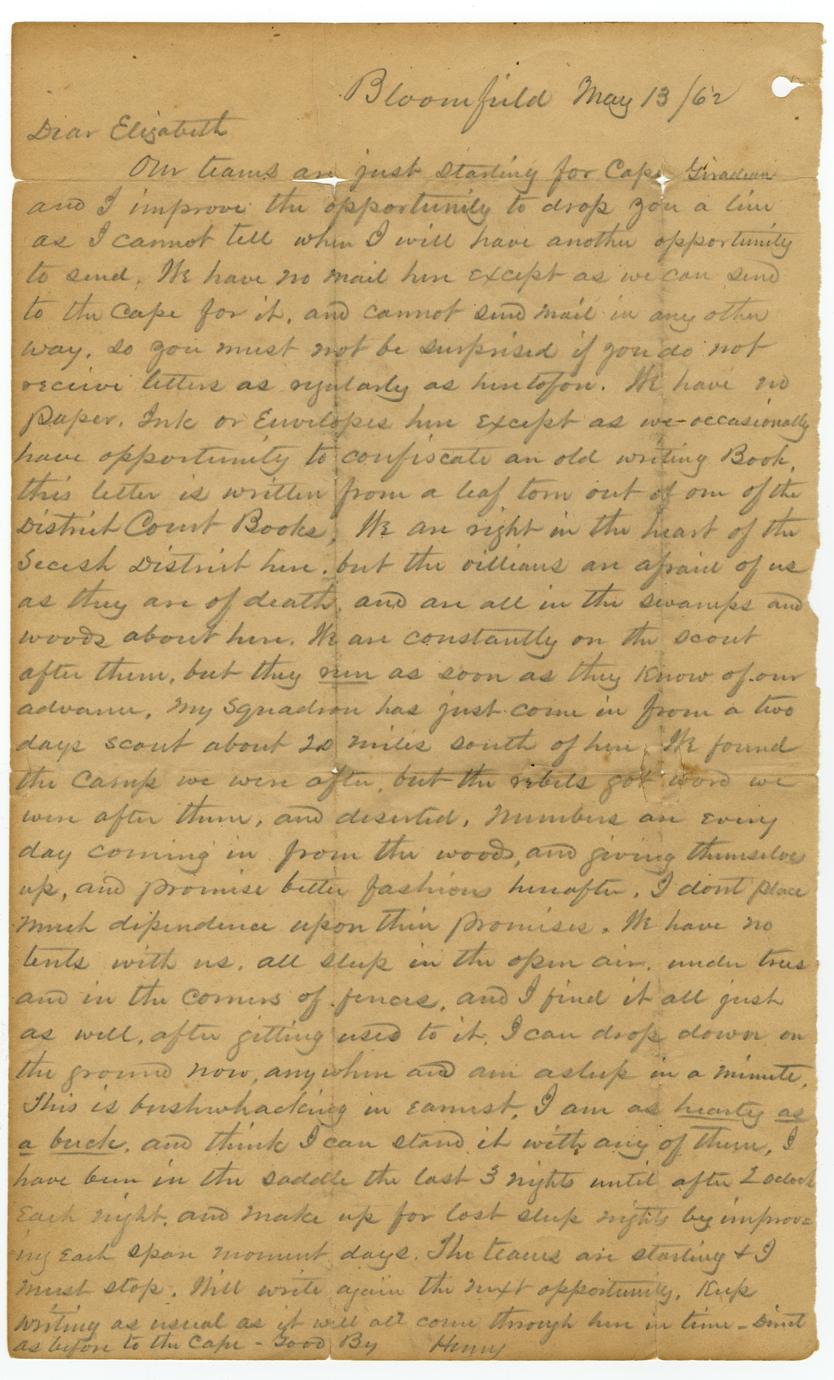 Bloomfield May 13/62
Dear Elizabeth
Our teams are just starting for Cape Giradeau
and I improve the opportunity to drop you a line
as I cannot tell when I will have another opportunity
to send. We have no mail here except as we can send
to the Cape for it, and cannot send mail in any other
way. so you must not be surprised if you do not
receive letters as regularly as heretofore. We have no
paper. Ink or Envelopes here except as we occasionally
have opportunity to confiscate an old writing Book,
this letter is written from a leaf torn out of one of the
District Court Books. We are right in the heart of the
Secesh District here. but the villians are afraid of us
as they are of death, and are all in the swamps and
woods about here. We are constantly on the scout
after them, but they run as soon as they Know of our
advance. My Squadron has just come in from a two
days scout about 20 miles south of here. We found
the Camp we were after, but the rebels got word we
were after them, and deserted. Numbers are every
day coming in from the woods, and giving themselves
up, and promise better fashions hereafter. I dont place
much dependence upon their promises. We have no
tents with us. all sleep in the open air. under trees
and in the corners of fences, and I find it all just
as well, after gitting used to it. I can drop down on
the ground now, anywhere and am asleep in a minute.
This is bushwhacking in earnest. I am as hearty as
a buck. and think I can stand it with any of them. I
have been in the saddle the last 3 nights until after 2 oclock
Each night. and make up for lost sleep nights by improv=
ing Each spare moment days. The teams are starting & I
must stop. Will write again the next opportunity. Keep
writing as usual as it will all come through here in time - Direct
as before to the Cape - Good By Henry